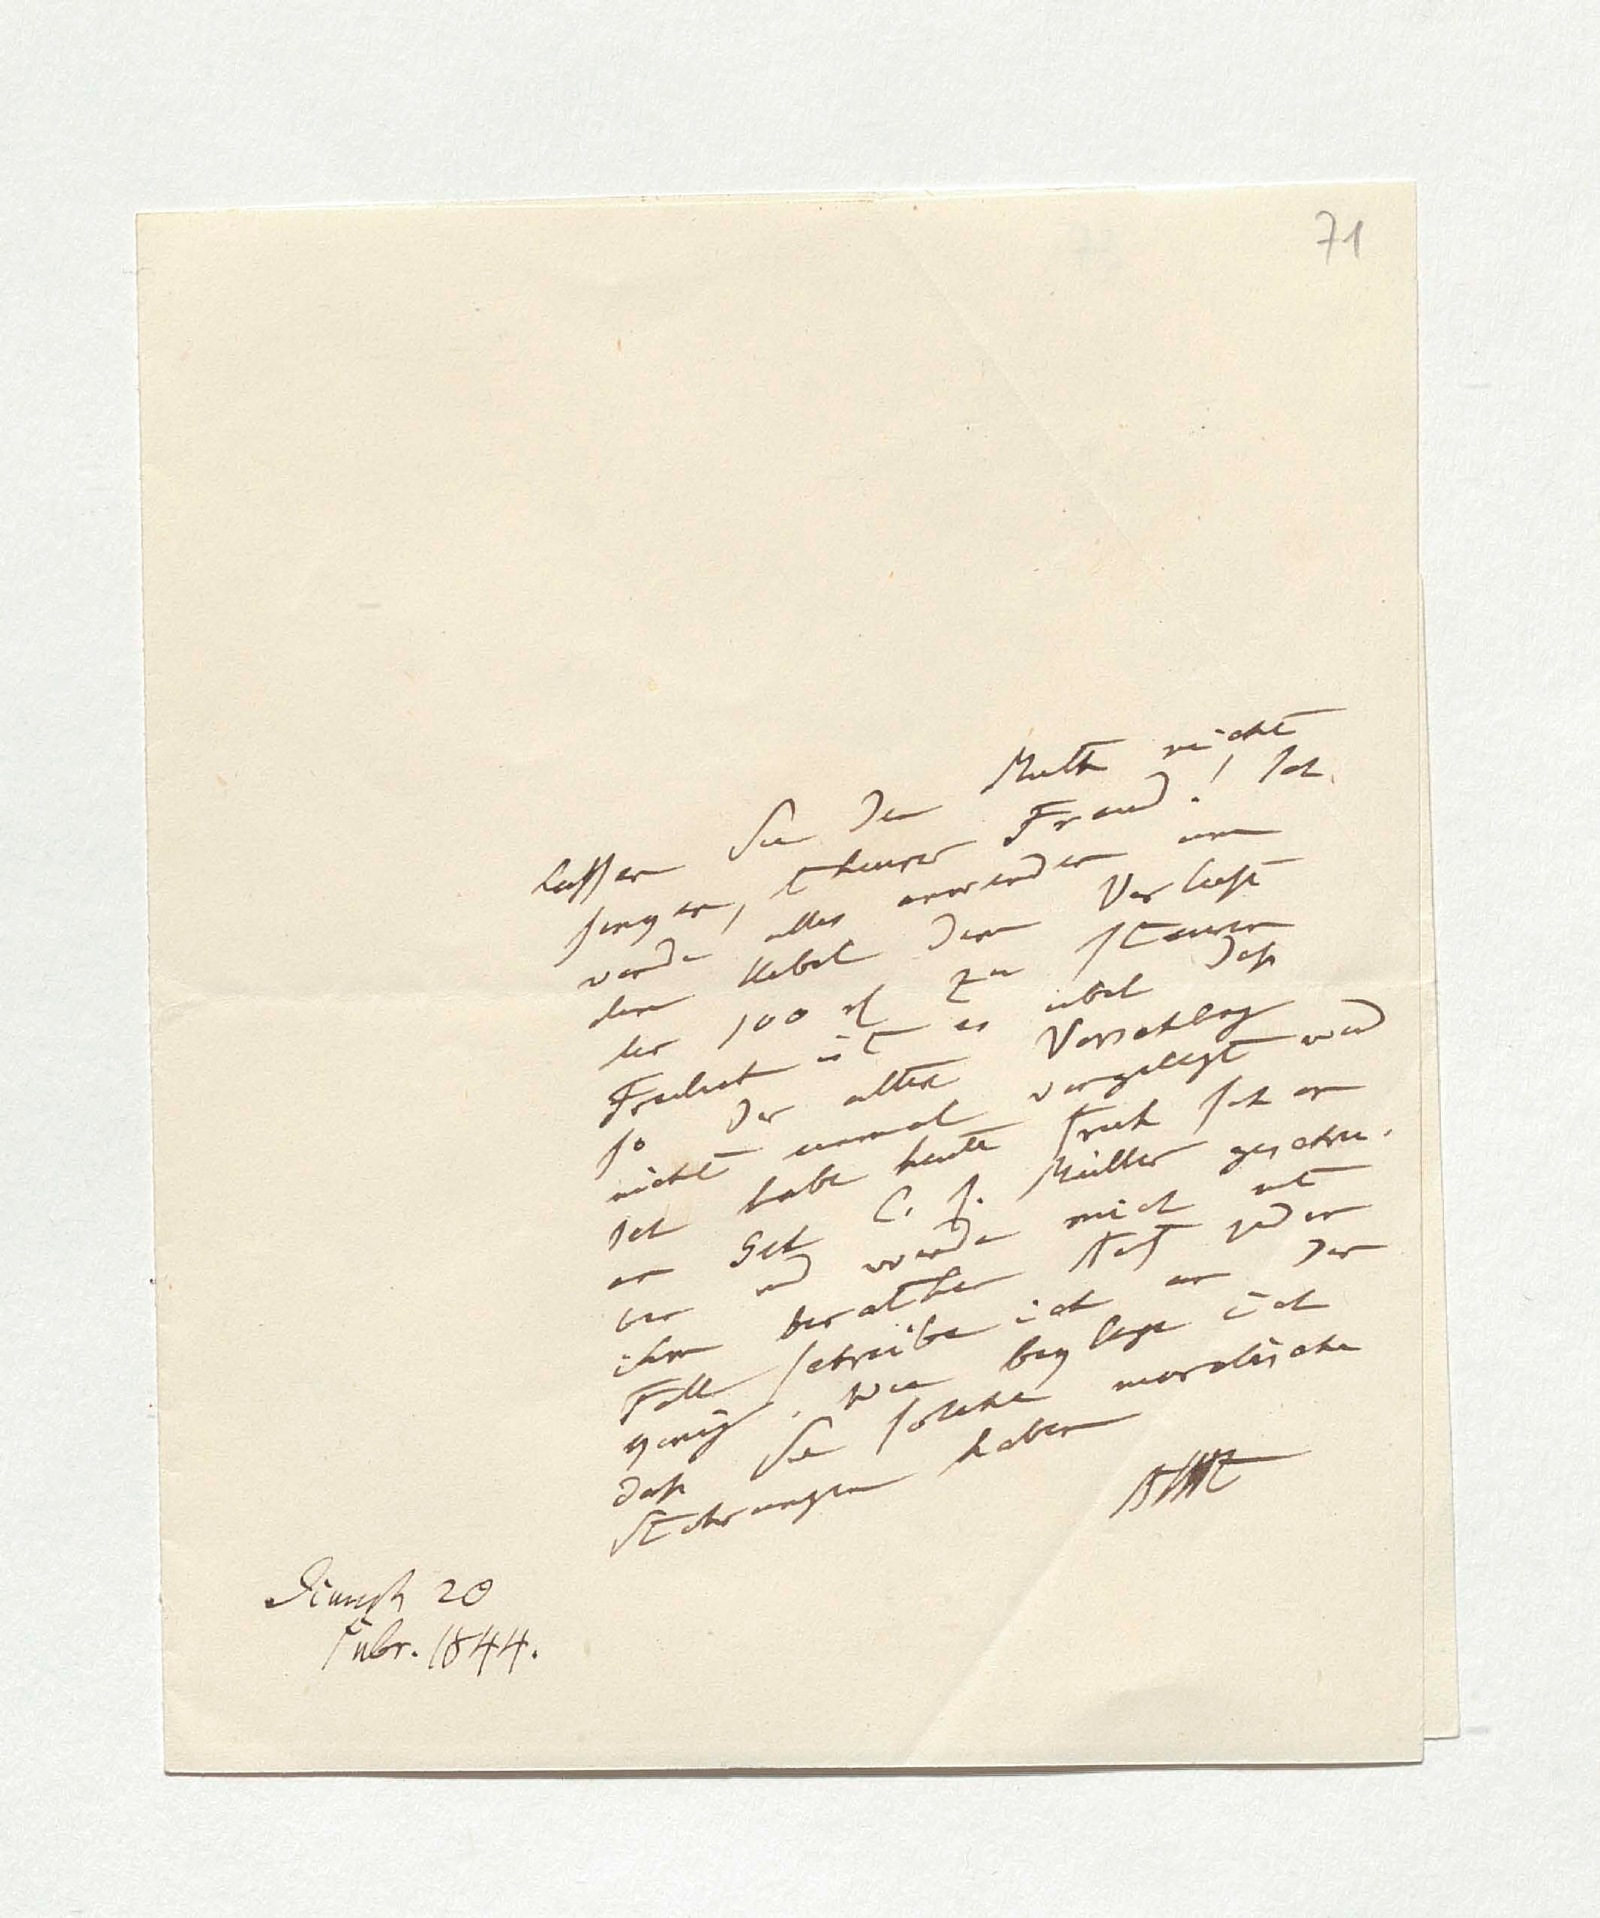 71
Lassen Sie den Muth nicht
sinken, theurer Freund! Ich
werde alles anwenden um
dem Uebel dem Verlust
der 100 rl zu steuern
Freilich ist es übel daß
so der alten Vorschlag
nicht einmal vorgelegt wird
Ich habe heute früh schon
an Geh C. S. Müller geschrie-
ben und werde mich mit
ihm berathen Auf jeden
Fall schreibe ich an den
König. Wie beklage ich
daß Sie solche moralische
Stöhrungen haben
AHt
Dienst 20
Febr. 1844.